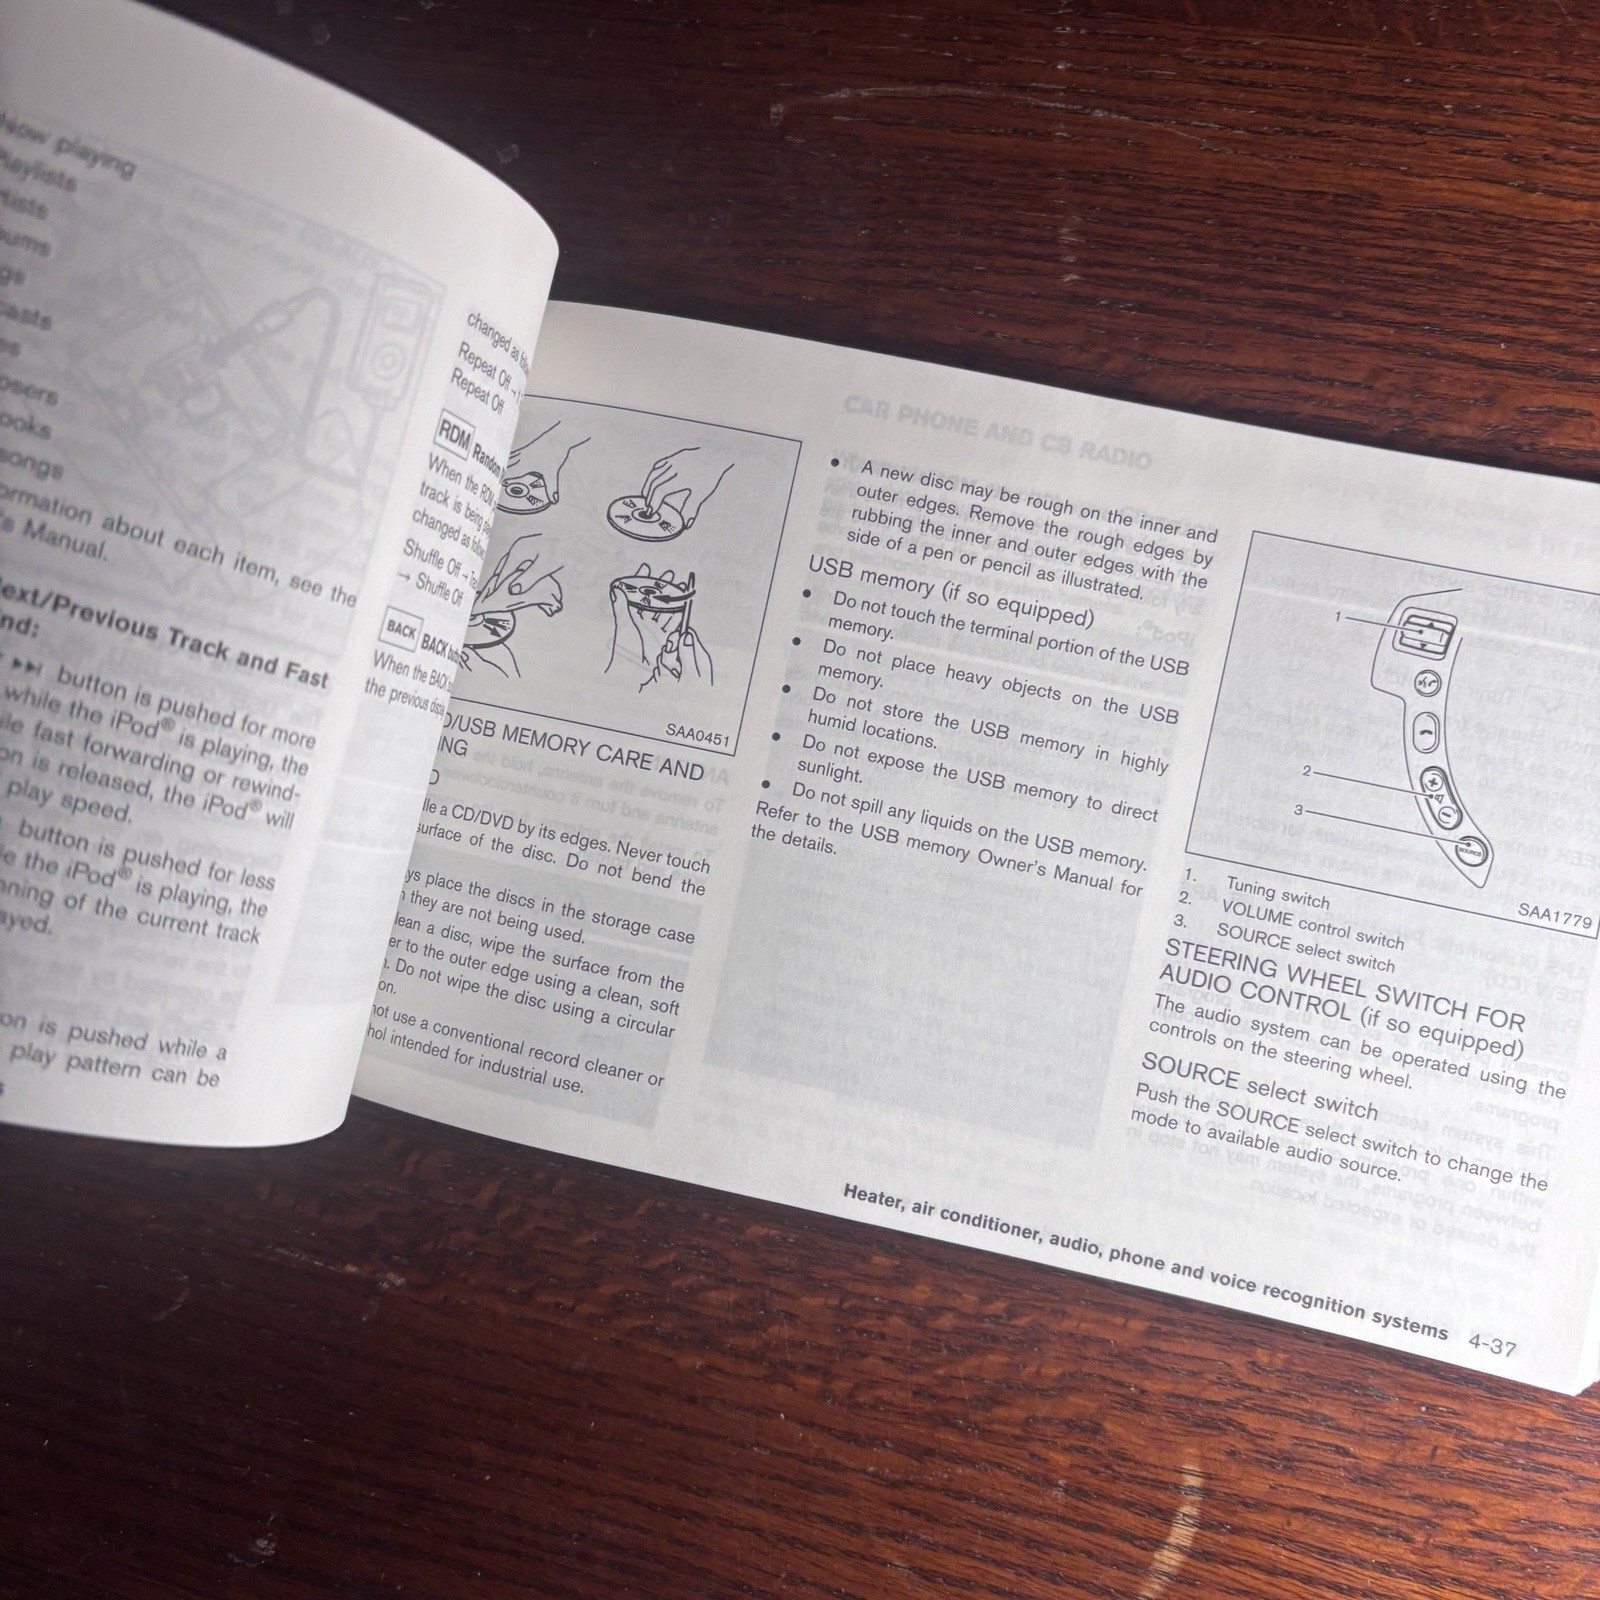 playing
Playlists
songs
about each item, see the
Manual.
Track and Fast
button is pushed for more
while the iPod® is playing, the
fast forwarding or rewind-
is released, the iPod® will
play speed.
button is pushed for less
the iPod® is playing, the
of the current track
is pushed while a
play pattern can be
changed as
Repeat Off →
Repeat Off
RDM Random
When the RDM
track is being
changed as
Shuffle Off →
→ Shuffle Off
BACK BACK
When the BACK
the previous
SAA0451
/USB MEMORY CARE AND
a CD/DVD by its edges. Never touch
surface of the disc. Do not bend the
place the discs in the storage case
they are not being used.
a disc, wipe the surface from the
to the outer edge using a clean, soft
Do not wipe the disc using a circular
use a conventional record cleaner or
intended for industrial use.
CAR PHONE AND CB RADIO
• A new disc may be rough on the inner and
outer edges. Remove the rough edges by
rubbing the inner and outer edges with the
side of a pen or pencil as illustrated.
USB memory (if so equipped)
• Do not touch the terminal portion of the USB
memory.
• Do not place heavy objects on the USB
memory.
• Do not store the USB memory in highly
humid locations.
• Do not expose the USB memory to direct
sunlight.
• Do not spill any liquids on the USB memory.
Refer to the USB memory Owner's Manual for
the details.
1
2
3
SOURCE
SAA1779
1. Tuning switch
2. VOLUME control switch
3. SOURCE select switch
STEERING WHEEL SWITCH FOR
AUDIO CONTROL (if so equipped)
The audio system can be operated using the
controls on the steering wheel.
SOURCE select switch
Push the SOURCE select switch to change the
mode to available audio source.
Heater, air conditioner, audio, phone and voice recognition systems 4-37